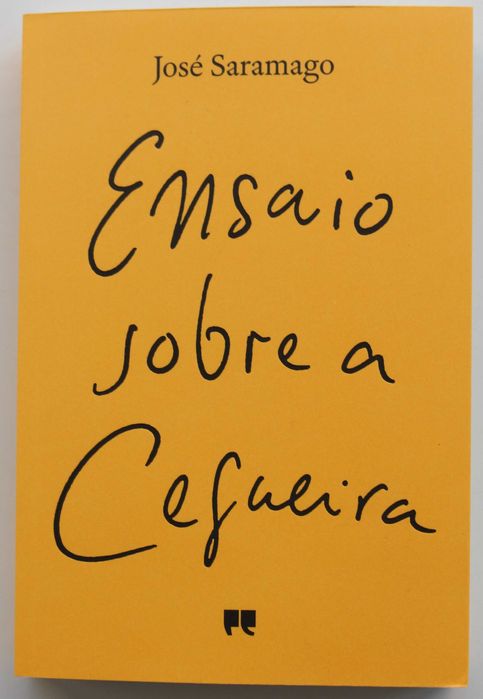 José Saramago
Ensaio
sobre a
Cegueira